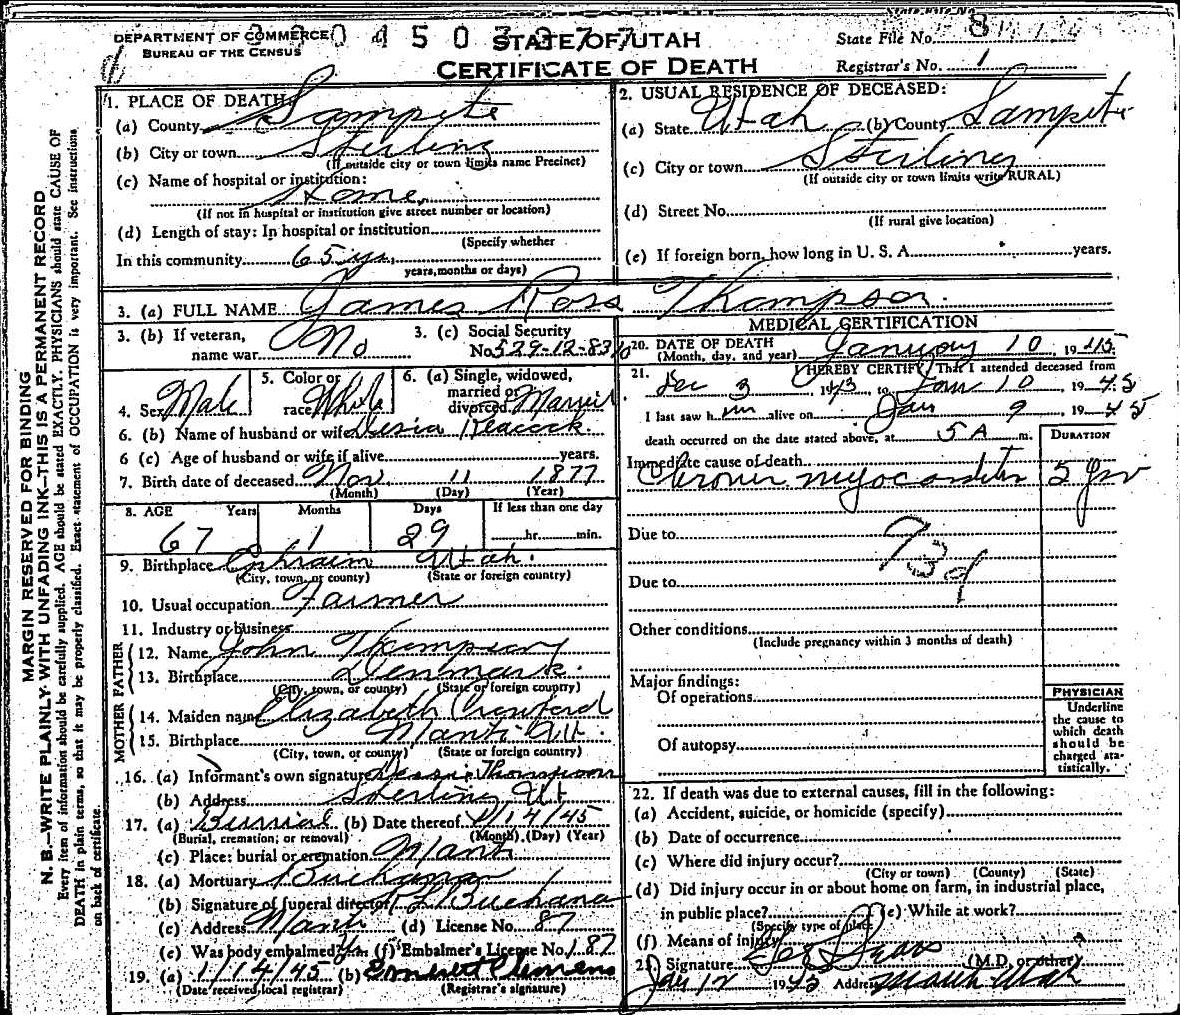 State File No.
DEPARTMENT OF COMMERCE
BUREAU OF THE CENSUS
STATE OF UTAH
CERTIFICATE OF DEATH
State File No. 8
Registrar's No. 1
MARGIN RESERVED FOR BINDING
N. B.—WRITE PLAINLY WITH UNFADING INK—THIS IS A PERMANENT RECORD
Every item of information should be carefully supplied. AGE should be stated EXACTLY. PHYSICIANS should state CAUSE OF
DEATH in plain terms, so that it may be properly classified. Exact statement of OCCUPATION is very important. See instructions
on back of certificate.
1. PLACE OF DEATH:
(a) County Sanpete
(b) City or town Sterling
(If outside city or town limits name Precinct)
(c) Name of hospital or institution:
Home
(If not in hospital or institution give street number or location)
(d) Length of stay: In hospital or institution
(Specify whether
In this community 65 yrs.
years, months or days)
2. USUAL RESIDENCE OF DECEASED:
(a) State Utah (b) County Sanpete
(c) City or town Sterling
(If outside city or town limits write RURAL)
(d) Street No.
(If rural give location)
(e) If foreign born, how long in U. S. A. years.
3. (a) FULL NAME James Ross Thompson
3. (b) If veteran,
name war No
3. (c) Social Security
No. 529-12-83
4. Sex Male
5. Color or
race White
6. (a) Single, widowed,
married or
divorced Married
6. (b) Name of husband or wife Peacock
6 (c) Age of husband or wife if alive years.
7. Birth date of deceased Nov 11 1877
(Month) (Day) (Year)
8. AGE Years Months Days If less than one day
67 1 29 hr. min.
9. Birthplace Ephraim Utah.
(City, town, or county) (State or foreign country)
10. Usual occupation Farmer
11. Industry or business
FATHER
12. Name John Thompson
13. Birthplace Denmark.
(City, town, or county) (State or foreign country)
MOTHER
14. Maiden name Elizabeth Crawford
15. Birthplace Manti Ut.
(City, town, or county) (State or foreign country)
16. (a) Informant's own signature Thompson
(b) Address Sterling Ut
17. (a) Burial (b) Date thereof 1/14/45
(Burial, cremation, or removal) (Month) (Day) (Year)
(c) Place: burial or cremation Manti
18. (a) Mortuary Buchanan
(b) Signature of funeral director Buchanan
(c) Address Manti (d) License No. 87
(e) Was body embalmed? Yes (f) Embalmer's License No. 187
19. (a) 1/14/45 (b) Emerett Clemens
(Date received local registrar) (Registrar's signature)
MEDICAL CERTIFICATION
20. DATE OF DEATH
(Month, day, and year) January 10, 1945
21. I HEREBY CERTIFY, That I attended deceased from
Dec 3 1943, to Jan 10, 1945
I last saw him alive on Jan 9, 1945
death occurred on the date stated above, at 5 A m.
DURATION
Immediate cause of death
Chronic myocarditis 5 yrs
Due to
93d
Due to
Other conditions
(Include pregnancy within 3 months of death)
Major findings:
Of operations
Of autopsy
PHYSICIAN
Underline
the cause to
which death
should be
charged sta-
tistically.
22. If death was due to external causes, fill in the following:
(a) Accident, suicide, or homicide (specify)
(b) Date of occurrence
(c) Where did injury occur?
(City or town) (County) (State)
(d) Did injury occur in or about home on farm, in industrial place,
in public place? (e) While at work?
(Specify type of place)
(f) Means of injury
23. Signature Sears (M.D. or other)
Jan 12 1945 Address Manti Utah